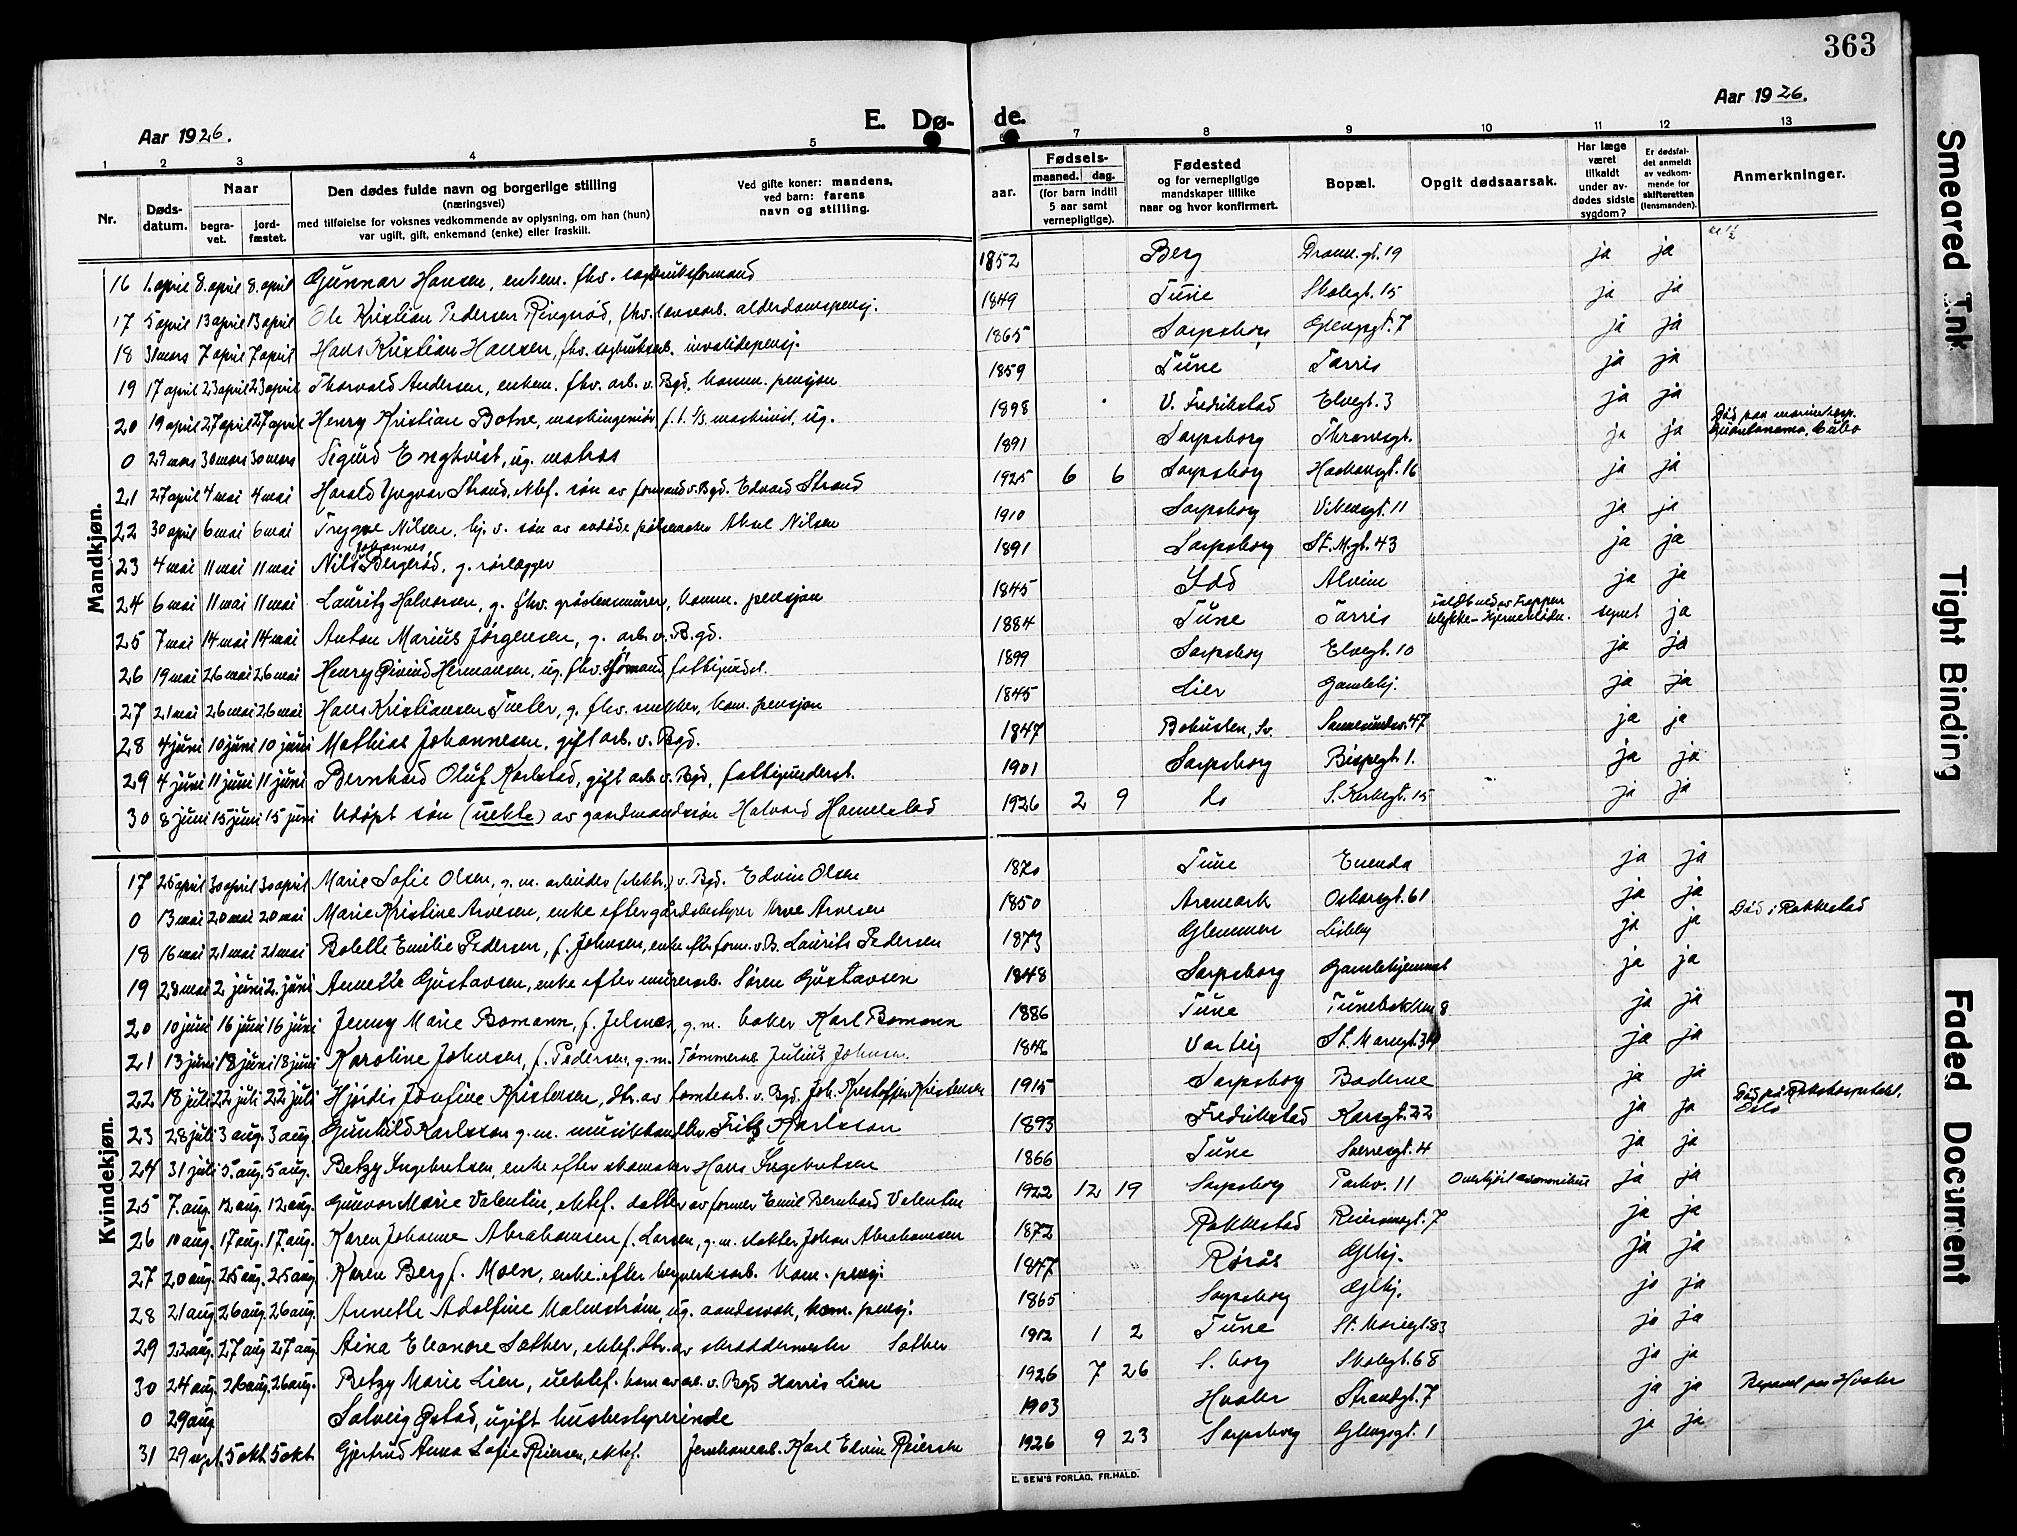 363
Aar 1926.
E. Dø-
de.
Aar 1926.
1 2 3 4 5 6 7 8 9 10 11 12 13
Nr.
Døds-datum.
Naar
begra-vet.
jord-fæstet.
Den dødes fulde navn og borgerlige stilling
(næringsvei)
med tilføielse for voksnes vedkommende av oplysning, om han (hun)
var ugift, gift, enkemand (enke) eller fraskilt.
Ved gifte koner: mandens,
ved barn: farens
navn og stilling.
aar.
Fødsels-
maaned. dag.
(for barn indtil
5 aar samt
vernepligtige).
Fødested
og for vernepligtige
mandskaper tillike
naar og hvor konfirmert.
Bopæl.
Opgit dødsaarsak.
Har læge
været
tilkaldt
under av-
dødes sidste
sygdom?
Er dødsfal-
det anmeldt
av vedkom-
mende for
skifteretten
(lensmanden).
Anmerkninger.
Mandkjøn.
16 1. april 8. april 8. april Gunnar Hansen, enkem. fhv. sagbruksformand 1852 Berg Dramm.gt. 19 ja ja
17 5 april 13 april 13 april Ole Kristian Pedersen Ringrød, fhv. alderdomspensj. 1849 Tune Skolegt. 15 ja ja
18 31 mars 7 april 7 april Hans Kristian Hansen, fhv. sagbruksarb. invalidepensj. 1865 Sarpsborg Glengsgt. 7 ja ja
19 17 april 23 april 23 april Thorvald Andersen, enkem. fhv. arb. v. Bgd. komm. pensjon 1859 Tune Tarris ja ja
20 19 april 27 april 27 april Henry Kristian Botne, maskiningeniør f. t. maskinist, ug. 1898 V. Fredrikstad Elvegt. 3 ja ja
0 29 mars 30 mars 30 mars Sigurd Engkvist, ug. matros 1891 Sarpsborg Thranesgt. ja ja Død paa marinehosp. Guantanamo, Cuba
21 27 april 4 mai 4 mai Harald Yngvar Strand, ektef. søn av formand v. Bgd. Edvard Strand 1925 6 6 Sarpsborg Haakonsgt. 16 ja ja
22 30 april 6 mai 6 mai Trygve Nilsen, hj. v. søn av avdøde pølsemaker Aksel Nilsen 1910 Sarpsborg Vikensgt. 11 ja ja
23 4 mai 11 mai 11 mai Nils Johannes Bergerød, g. rørlægger 1891 Sarpsborg St. M.gt. 43 ja ja
24 6 mai 11 mai 11 mai Lauritz Halvorsen, g. fhv. gråstensmurer, komm. pensjon 1845 Idd Alvim ja ja
25 7 mai 14 mai 14 mai Anton Marius Jørgensen, g. arb. v. Bgd. 1884 Tune Tarris Faldt ned av trappen ulykke - Hjerneblødn. synet ja
26 19 mai 26 mai 26 mai Henry Øivind Hermansen, ug. fhv. sjømand fattigunderst. 1899 Sarpsborg Elvegt. 10 ja ja
27 21 mai 26 mai 26 mai Hans Kristiansen Tveter, g. fhv. snekker, kom. pensjon 1845 Lier Gamlehj. ja ja
28 4 juni 10 juni 10 juni Mathias Johannesen, gift arb. v. Bgd. 1847 Bohuslen, Sv. Sannesundsv. 47 ja ja
29 4 juni 11 juni 11 juni Bernhard Oluf Karlstad, gift arb. v. Bgd, fattigunderst. 1901 Sarpsborg Bispegt. 1. ja ja
30 8 juni 15 juni 15 juni Udøpt søn (uekte) av gaardmandssøn Halvard Hannestad 1926 2 9 do S. Kirkegt. 15 ja ja
Kvindekjøn.
17 25 april 30 april 30 april Marie Sofie Olsen, g. m. arbeider (elektr.) v. Bgd. Edvin Olsen 1870 Tune Enenda ja ja
0 13 mai 20 mai 20 mai Marie Kristine Arvesen, enke efter gårdsbestyrer Arve Arvesen 1850 Aremark Oskarsgt. 61 ja ja Død i Rakkestad
18 16 mai 21 mai 21 mai Bolette Emilie Pedersen, f. Johnsen, enke eft. form. v. B. Laurits Pedersen 1873 Glemmen Lisleby ja ja
19 28 mai 2 juni 2. juni Annette Gustavsen, enke efter murerarb. Søren Gustavsen 1848 Sarpsborg Gamlehjemmet ja ja
20 10 juni 16 juni 16 juni Jenny Marie Bomann, f. Jelnæs g. m. baker Karl Bomann 1886 Tune Tunebakken 8 ja ja
21 13 juni 18 juni 18 juni Karoline Johnsen, f. Pedersen, g. m. Tømmerm. Julius Johnsen 1846 Varteig St. Mariegt. 34 ja ja
22 18 juli 22 juli 22 juli Hjørdis Josefine Kristensen, dtr. av tomtearb. v. Bgd. Joh. Kristoffer Kristensen 1915 Sarpsborg Baderne ja ja
23 28 juli 3 aug. 3 aug. Gunhild Karlsson g. m. musikhandler Fritz Karlsson 1893 Fredrikstad Korsgt. 22 ja ja Død på Rikshospitalet, Oslo
24 31 juli 5. aug. 5 aug. Betzy Ingebretsen, enke efter skomaker Hans Ingebretsen 1866 Tune Sverresgt. 4 ja ja
25 7. aug. 12 aug. 12 aug. Gunvor Marie Valentin, ektef. datter av former Emil Bernhard Valentin 1922 12 19 Sarpsborg Parkv. 11 Overkjørt av omnibus ja ja
26 10 aug. 17 aug. 17. aug. Karen Johanne Abrahamsen f. Larsen, g. m. slakter Johan Abrahamsen 1872 Rakkestad Reiersensgt. 7 ja ja
27 20 aug. 25 aug. 25 aug. Karen Berg f. Moen, enke efter bergverksarb. kom. pensj. 1847 Røros Glhj. ja ja
28 21 aug 26 aug 26 aug. Annette Adolfine Malmstrøm, ug. aandssvak, kom. pensj. 1865 Sarpsborg Glhj. ja ja
29 22 aug. 27 aug 27 aug. Aina Eleonore Sæther, ektef. dtr. av skræddermester Sæther 1912 1 2 Tune St. Mariegt. 83 ja ja
30 24 aug. 26 aug. 26 aug. Betzy Marie Lien, uektef. barn av arb. v. Bgd Harris Lien 1926 7 26 S.borg Skolegt. 68 ja ja
0 29 aug Solveig Østad, ugift husbestyrerinde 1903 Hvaler Strandgt. 7 ja ja Begravet paa Hvaler
31 29 sept. 5 okt. 5 okt. Gjertrud Anna Sofie Reiersen, ektef. Jernbanearb. Karl Edvin Reiersen 1926 9 23 Sarpsborg Glengsgt. 1 ja ja
E. SEM'S FORLAG, FR.HALD.
Smeared Ink
Tight Binding
Faded Document